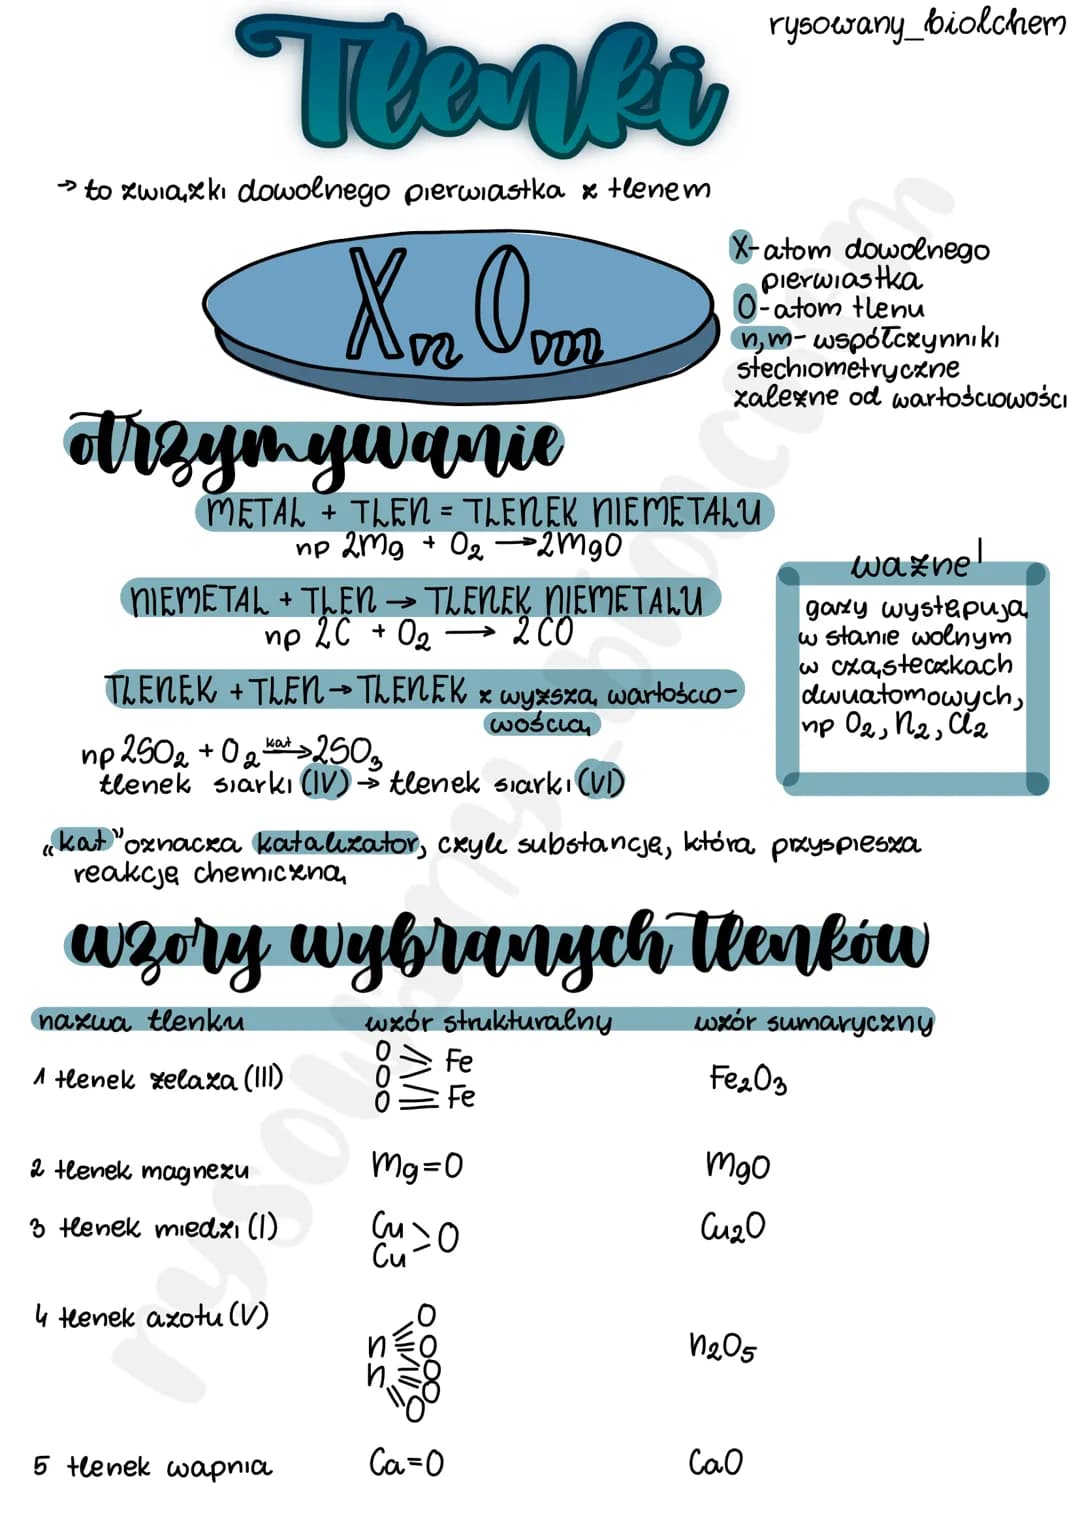 rysowany_biolchem
Tlenki
→ to związki dowolnego pierwiastka z tlenem
XnOm
X-atom dowolnego
pierwiastka
O-atom tlenu
n,m- współczynniki
stechiometryczne
zależne od wartościowości
otrzymywanie
METAL + TLEN = TLENEK NIEMETALU
np 2Mg + O₂ → 2MgO
NIEMETAL + TLEN → TLENEK NIEMETALU
np 2C + O₂ → 2CO
TLENEK + TLEN → TLENEK z wyższą wartościo-
wością
np 2SO₂ + O₂ kat→ 2SO₃
tlenek siarki (IV) → tlenek siarki (VI)
ważne!
gazy występują
w stanie wolnym
w cząsteczkach
dwuatomowych,
np O₂, N₂, Cl₂
„kat" oznacza katalizator, czyli substancję, która przyspiesza
reakcję chemiczną
wzory wybranych tlenków
nazwa tlenku wzór strukturalny wzór sumaryczny
1 tlenek żelaza (III) O O O Fe Fe Fe₂O₃
2 tlenek magnezu Mg=O MgO
3 tlenek miedzi (I) Cu Cu >O Cu₂O
4 tlenek azotu (V) N N O O O O O N₂O₅
5 tlenek wapnia Ca=O CaO
rysowany_biolchem